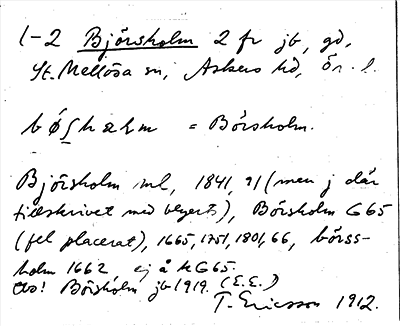 1-2 Björsholm 2 fr jb, gd,
St. Mellösa sn, Askers hd, Ör. l.
= Börsholm.
Björsholm ml, 1841, 91 (men j där
tillskrivet med blyerts), Börsholm G65
(fel placerat), 1665, 1751, 1801, 66, börss-
holm 1662 ej å kG65.
Obs! Börsholm jb 1919. (E.E.)
T. Ericsson 1912.